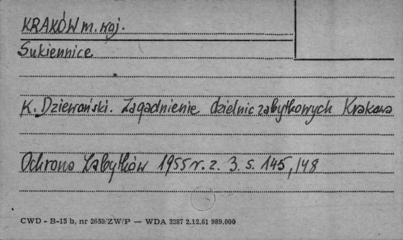 KRAKÓW m. woj.
Sukiennice
K. Dziewoński. Zagadnienie dzielnic zabytkowych Krakowa
Ochrona Zabytków 1955 r. z. 3. s. 145, 148
CWD - B-15 b, nr 2659/ZW/P — WDA 3287 2.12.61 989.000